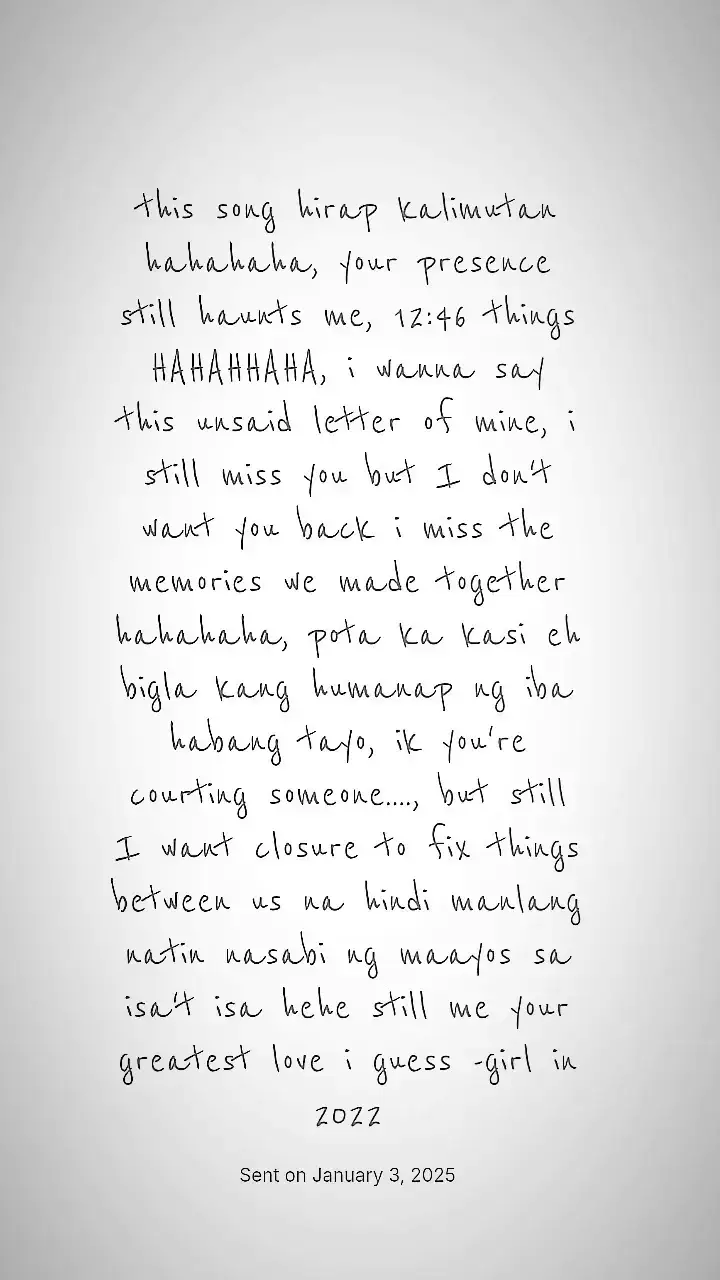 this song hirap kalimutan
hahahaha, your presence
still haunts me, 12:46 things
HAHAHHAHA, i wanna say
this unsaid letter of mine, i
still miss you but I don't
want you back i miss the
memories we made together
hahahaha, pota ka kasi eh
bigla kang humanap ng iba
habang tayo, ik you're
courting someone...., but still
I want closure to fix things
between us na hindi manlang
natin nasabi ng maayos sa
isa't isa hehe still me your
greatest love i guess -girl in
2022
Sent on January 3, 2025